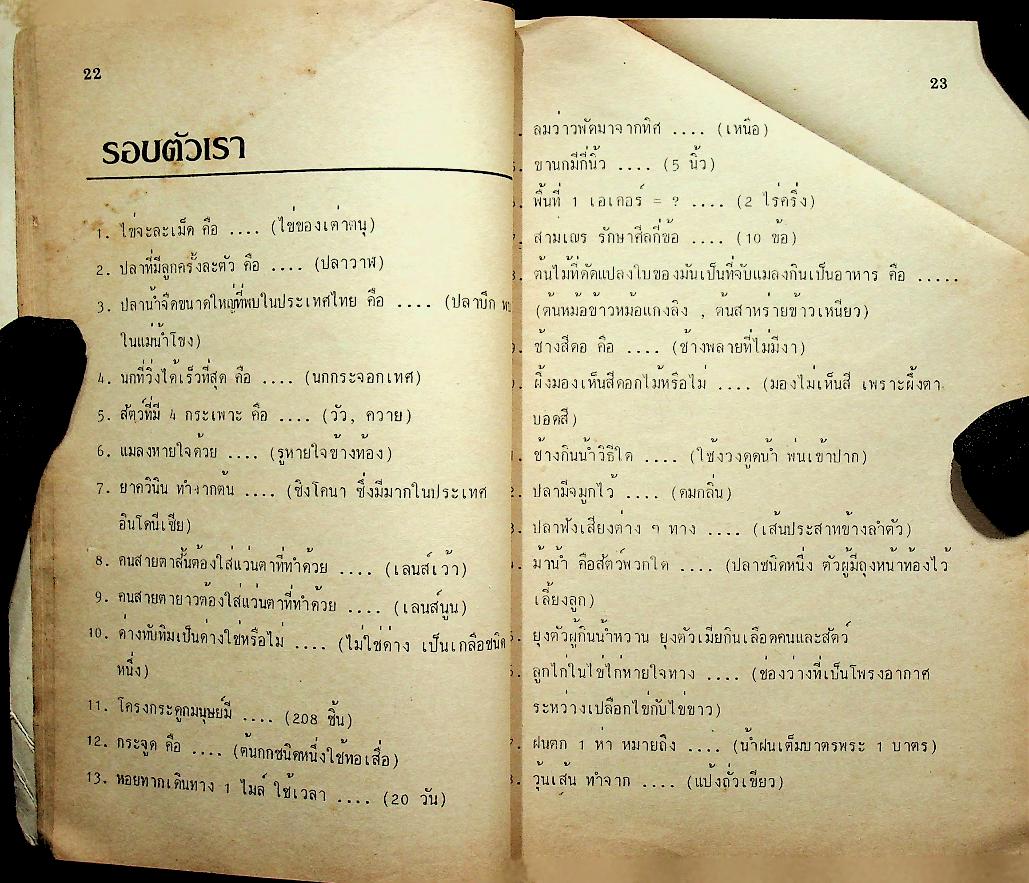 22
รอบตัวเรา
1. ไข่จะละเม็ด คือ .... (ไข่ของเต่าตนุ)
2. ปลาที่มีลูกครั้งละตัว คือ .... (ปลาวาฬ)
3. ปลาน้ำจืดขนาดใหญ่ที่พบในประเทศไทย คือ .... (ปลาบึก พบ
ในแม่น้ำโขง)
4. นกที่วิ่งได้เร็วที่สุด คือ .... (นกกระจอกเทศ)
5. สัตว์ที่มี 4 กระเพาะ คือ .... (วัว, ควาย)
6. แมลงหายใจด้วย .... (รูหายใจข้างท้อง)
7. ยาควินิน ทำจากต้น .... (ซิงโคนา ซึ่งมีมากในประเทศ
อินโดนีเซีย)
8. คนสายตาสั้นต้องใส่แว่นตาที่ทำด้วย .... (เลนส์เว้า)
9. คนสายตายาวต้องใส่แว่นตาที่ทำด้วย .... (เลนส์นูน)
10. ด่างทับทิมเป็นด่างใช่หรือไม่ .... (ไม่ใช่ด่าง เป็นเกลือชนิด
หนึ่ง)
11. โครงกระดูกมนุษย์มี .... (208 ชิ้น)
12. กระจูด คือ .... (ต้นกกชนิดหนึ่งใช้ทอเสื่อ)
13. หอยทากเดินทาง 1 ไมล์ ใช้เวลา .... (20 วัน)
23
ลมว่าวพัดมาจากทิศ .... (เหนือ)
ขานกมีกี่นิ้ว .... (5 นิ้ว)
พื้นที่ 1 เอเคอร์ = ? .... (2 ไร่ครึ่ง)
สามเณร รักษาศีลกี่ข้อ .... (10 ข้อ)
ต้นไม้ที่ดัดแปลงใบของมันเป็นที่จับแมลงกินเป็นอาหาร คือ .....
(ต้นหม้อข้าวหม้อแกงลิง , ต้นสาหร่ายข้าวเหนียว)
ช้างสีดอ คือ .... (ช้างพลายที่ไม่มีงา)
ผึ้งมองเห็นสีดอกไม้หรือไม่ .... (มองไม่เห็นสี เพราะผึ้งตา
บอดสี)
ช้างกินน้ำวิธีใด .... (ใช้งวงดูดน้ำ พ่นเข้าปาก)
ปลามีจมูกไว้ .... (ดมกลิ่น)
ปลาฟังเสียงต่าง ๆ ทาง .... (เส้นประสาทข้างลำตัว)
ม้าน้ำ คือสัตว์พวกใด .... (ปลาชนิดหนึ่ง ตัวผู้มีถุงหน้าท้องไว้
เลี้ยงลูก)
ยุงตัวผู้กินน้ำหวาน ยุงตัวเมียกินเลือดคนและสัตว์
ลูกไก่ในไข่ไก่หายใจทาง .... (ช่องว่างที่เป็นโพรงอากาศ
ระหว่างเปลือกไข่กับไข่ขาว)
ฝนตก 1 ห่า หมายถึง .... (น้ำฝนเต็มบาตรพระ 1 บาตร)
วุ้นเส้น ทำจาก .... (แป้งถั่วเขียว)